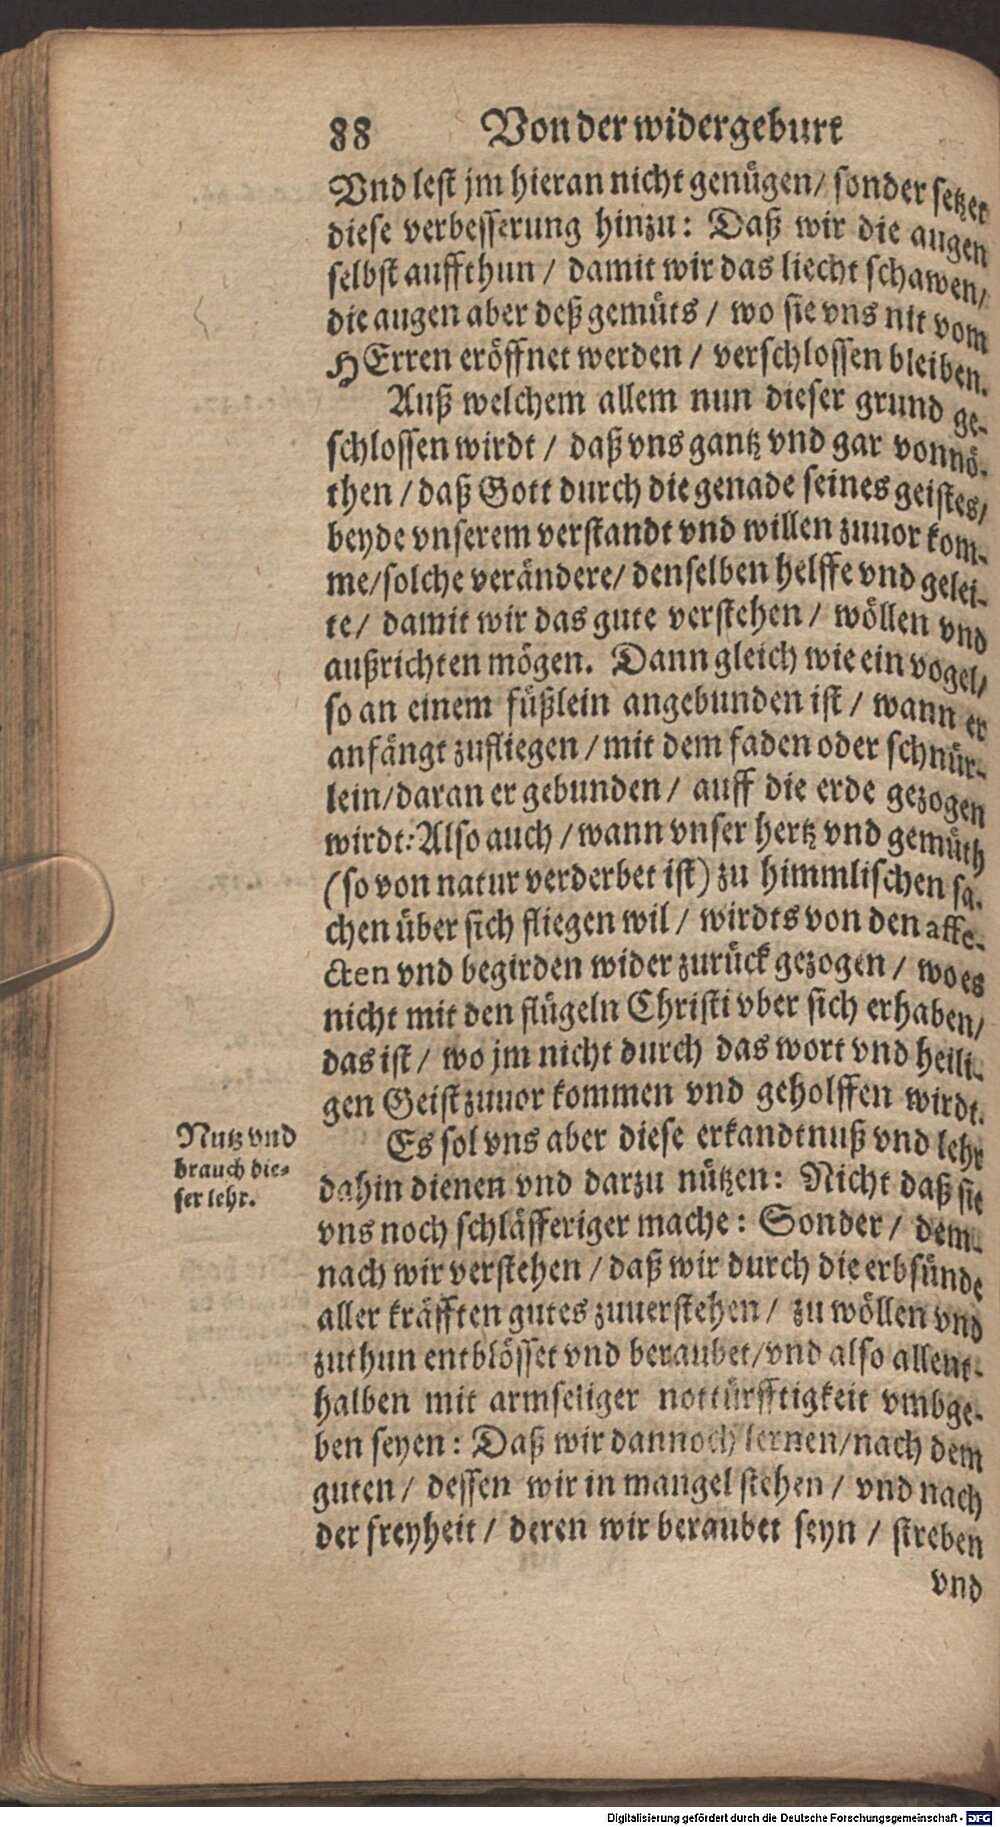 88 Von der widergeburt
Vnd lest jm hieran nicht genügen/ sonder setzet
diese verbesserung hinzu: Daß wir die augen
selbst auffthun / damit wir das liecht schawen/
die augen aber deß gemüts / wo sie vns nit vom
HErren eröffnet werden / verschlossen bleiben.
Auß welchem allem nun dieser grund ge-
schlossen wirdt / daß vns gantz vnd gar vonnö-
then / daß Gott durch die genade seines geistes/
beyde vnserem verstandt vnd willen zuuor kom-
me/solche verändere/ denselben helffe vnd gelei-
te/ damit wir das gute verstehen / wöllen vnd
außrichten mögen. Dann gleich wie ein vogel/
so an einem füßlein angebunden ist / wann er
anfängt zufliegen / mit dem faden oder schnür-
lein/daran er gebunden / auff die erde gezogen
wirdt: Also auch / wann vnser hertz vnd gemüth
(so von natur verderbet ist) zu himmlischen sa-
chen über sich fliegen wil / wirdts von den affe-
cten vnd begirden wider zurück gezogen / wo es
nicht mit den flügeln Christi vber sich erhaben/
das ist / wo jm nicht durch das wort vnd heili-
gen Geist zuuor kommen vnd geholffen wirdt.
Nutz vnd
brauch die-
ser lehr.
Es sol vns aber diese erkandtnuß vnd lehr
dahin dienen vnd darzu nützen: Nicht daß sie
vns noch schläfferiger mache: Sonder / dem-
nach wir verstehen / daß wir durch die erbsünde
aller kräfften gutes zuuerstehen / zu wöllen vnd
zuthun entblösset vnd beraubet/vnd also allent-
halben mit armseliger nottürfftigkeit vmbge-
ben seyen: Daß wir dannoch lernen/nach dem
guten / dessen wir in mangel stehen / vnd nach
der freyheit / deren wir beraubet seyn / streben
vnd
Digitalisierung gefördert durch die Deutsche Forschungsgemeinschaft - DFG